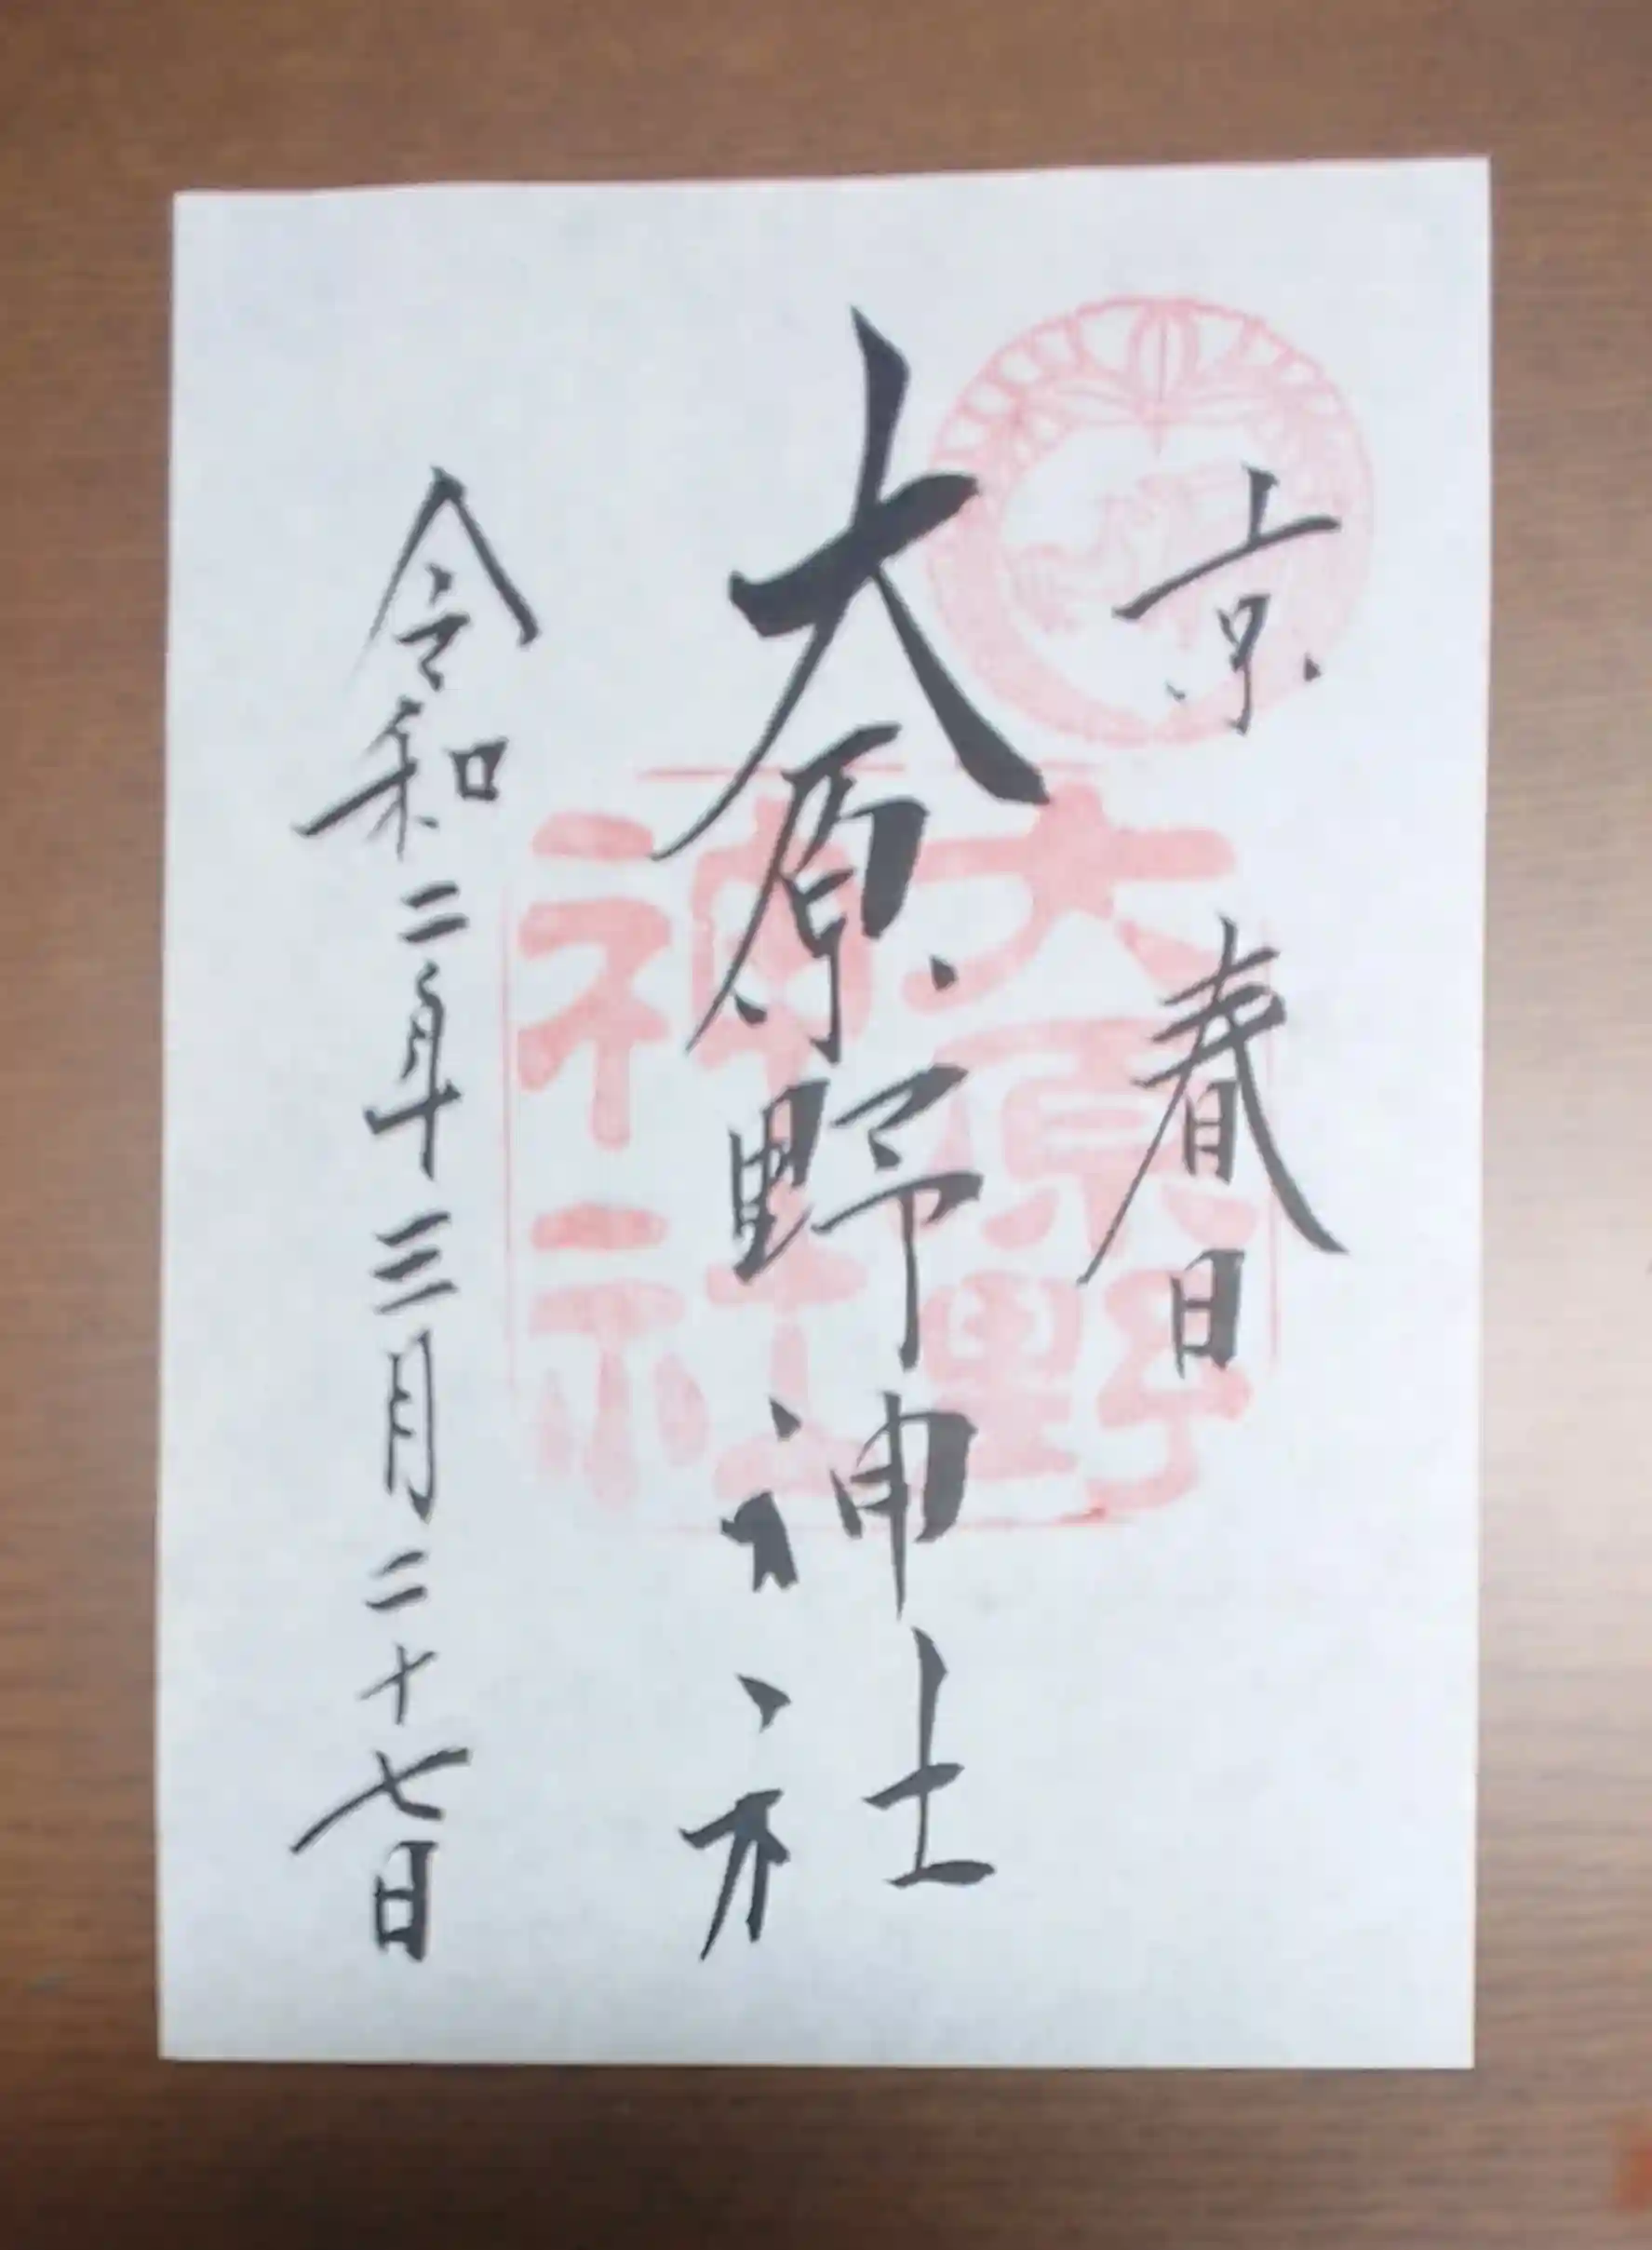 京 春日
大原野神社
令和二年三月二十七日
大原野
神社